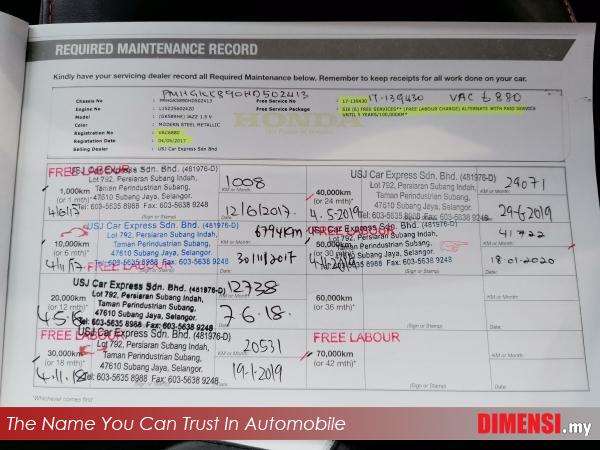 REQUIRED MAINTENANCE RECORD
Kindly have your servicing dealer record all Required Maintenance below. Remember to keep receipts for all work done on your car.
PMHGK5890HD502413 17-139430 VAC 6880
Chassis No : PMHGK5890HD502413 Free Service No : 17-139430
Free Service Package : SIX (6) FREE SERVICES** (FREE LABOUR CHARGE) ALTERNATE WITH PAID SERVICE
UNTIL 5 YEARS/100,000KM*
Engine No :
Model : (GK589HE) JAZZ 1.5 V
Color : MODERN STEEL METALLIC
Registration No : VAC6880
Registration Date : 04/05/2017
Selling Dealer : USJ Car Express Sdn Bhd
HONDA
FREE LABOUR
USJ Car Express Sdn. Bhd. (481976-D)
Lot 792, Persiaran Subang Indah,
Taman Perindustrian Subang,
47610 Subang Jaya, Selangor.
Tel: 603-5635 8988 Fax: 603-5638 9248
1,000km
(or 1 mth)*
4/6/17
(Sign or Stamp)
1008
KM or Month
12/6/2017.
Date
40,000km
(or 24 mth)
4.5.2019
USJ Car Express Sdn. Bhd. (481976-D)
Lot 792, Persiaran Subang Indah,
Taman Perindustrian Subang,
47610 Subang Jaya, Selangor.
Tel: 603-5635 8988 Fax: 603-5638 9248
29071
KM or Month
29-6-2019
Date
10,000km
(or 6 mth)*
4/11/17
USJ Car Express Sdn. Bhd. (481976-D)
Lot 792, Persiaran Subang Indah,
Taman Perindustrian Subang,
47610 Subang Jaya, Selangor.
Tel: 603-5635 8988 Fax: 603-5638 9248
6794KM
30/11/2017
FREE LABOUR
50,000km
(or 30 mth)
USJ Car Express Sdn. Bhd. (481976-D)
Lot 792, Persiaran Subang Indah,
Taman Perindustrian Subang,
47610 Subang Jaya, Selangor.
Tel: 603-5635 8988 Fax: 603-5638 9248
41722
KM or Month
18-01-2020
Date
FREE LABOUR
20,000km
(or 12 mth)
USJ Car Express Sdn. Bhd. (481976-D)
Lot 792, Persiaran Subang Indah,
Taman Perindustrian Subang,
47610 Subang Jaya, Selangor.
Tel: 603-5635 8988 Fax: 603-5638 9248
12738
KM or Month
7-6-18.
60,000km
(or 36 mth)
(Sign or Stamp)
KM or Month
Date
FREE LABOUR
30,000km
(or 18 mth)*
4.11.18
USJ Car Express Sdn. Bhd. (481976-D)
Lot 792, Persiaran Subang Indah,
Taman Perindustrian Subang,
47610 Subang Jaya, Selangor.
Tel: 603-5635 8988 Fax: 603-5638 9248
20531
KM or Month
19-1-2019
Date
FREE LABOUR
70,000km
(or 42 mth)
(Sign or Stamp)
KM or Month
Date
*Whichever comes first
The Name You Can Trust In Automobile
DIMENSI.my